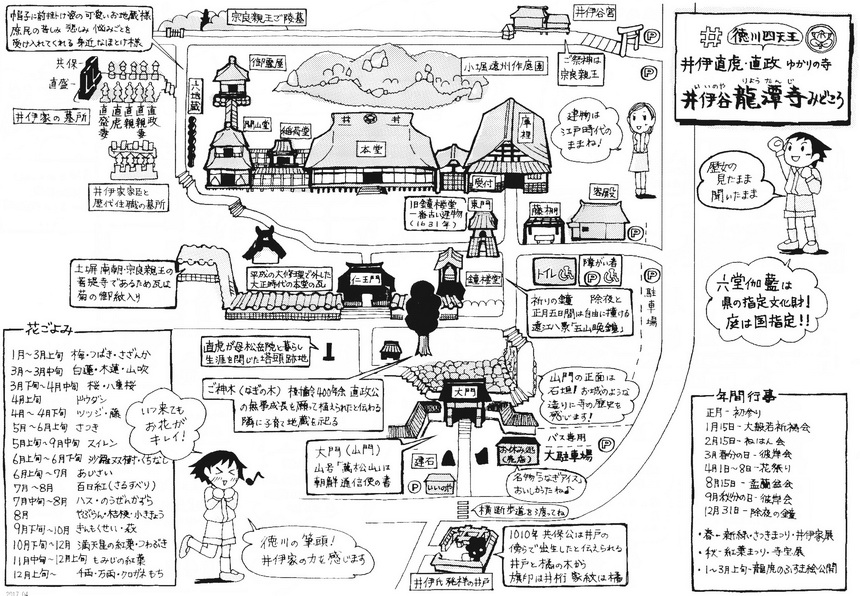 徳川四天王
井伊直虎・直政 ゆかりの寺
いいのや りょうたんじ
井伊谷 龍潭寺 みどころ
歴女の
見たまま
聞いたまま
六堂伽藍は
県の指定文化財!
庭は国指定!!
帽子に前掛け姿の可愛いお地蔵様
庶民の苦しみ 悲しみ 悩みごとを
受け入れてくれる身近なほとけ様
宗良親王ご陵墓
井伊谷宮
ご祭神は
宗良親王
P
P
共保
直盛
直盛妻
直虎
直親
直親妻
直政
井伊家の墓所
井伊家家臣と
歴代住職の墓所
六地蔵
御霊屋
小堀遠州作庭園
開山堂
稲荷堂
井
本堂
庫裡
受付
建物は
江戸時代の
ままね!
旧鐘楼堂
一番古い建物
(1631年)
東門
藤棚
客殿
P
土塀 南朝・宗良親王の
菩提寺であるため瓦は
菊の御紋入り
平成の大修理で外した
大正時代の本堂の瓦
仁王門
鐘楼堂
トイレ
障がい者
P
P
駐車場
祈りの鐘 除夜と
正月五日間は自由に撞ける
遠江八景「五山晩鐘」
直虎が母松岳院と暮らし
生涯を閉じた塔頭跡地
ご神木(なぎの木) 樹齢400年余 直政公
の無事成長を願って植えられたと伝わる
隣に子育て地蔵を祀る
大門
山門の正面は
石垣!お城のような
造りに寺の歴史を
感じます!
大門(山門)
山号「萬松山」は
朝鮮通信使の書
建石
お休み処
(売店)
バス専用
大駐車場
P
名物「うなぎアイス」
おいしかったねっ
P
いいのや
横断歩道を渡ってね
井伊氏発祥の井戸
1010年 共保公は井戸の
傍らで出生したと伝えられる
井戸と橘の木から
旗印は井桁 家紋は橘
花ごよみ
1月~3月上旬 梅・つばき・さざんか
3月~3月中旬 白蓮・木蓮・山吹
3月下旬~4月中旬 桜・八重桜
4月上旬 ドウダン
4月~4月下旬 ツツジ・藤
5月~6月上旬 さつき
5月上旬~9月中旬 スイレン
6月上旬~6月下旬 沙羅双樹・くちなし
6月上旬~7月 あじさい
7月~8月 百日紅(さるすべり)
7月中旬~8月 ハス・のうぜんかずら
8月 やぶらん・桔梗・小ききょう
9月下旬~10月 きんもくせい・萩
10月下旬~12月 満天星の紅葉・つわぶき
11月中旬~12月上旬 もみじの紅葉
12月上旬~ 千両・万両・クロガネもち
いつ来ても
お花が
キレイ!
徳川の筆頭!
井伊家の力を感じます
年間行事
正月・初参り
1月15日・大般若祈祷会
2月15日・ねはん会
3月春分の日・彼岸会
4月1日~8日・花祭り
8月15日・盂蘭盆会
9月秋分の日・彼岸会
12月31日・除夜の鐘
・春・新緑・さつきまつり・井伊家展
・秋・紅葉まつり・寺宝展
・1~3月上旬・龍虎のふすま絵公開
2017.04